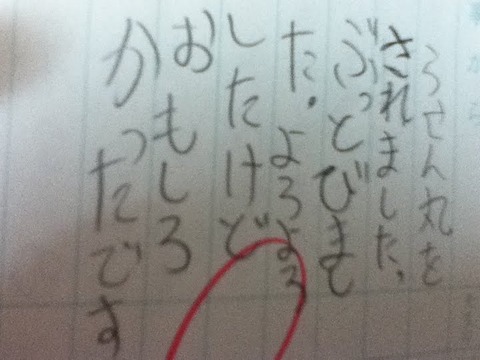 ろさん丸を
されました。
ぶっとびまし
た。よろよろ
したけど
おもしろ
かったです